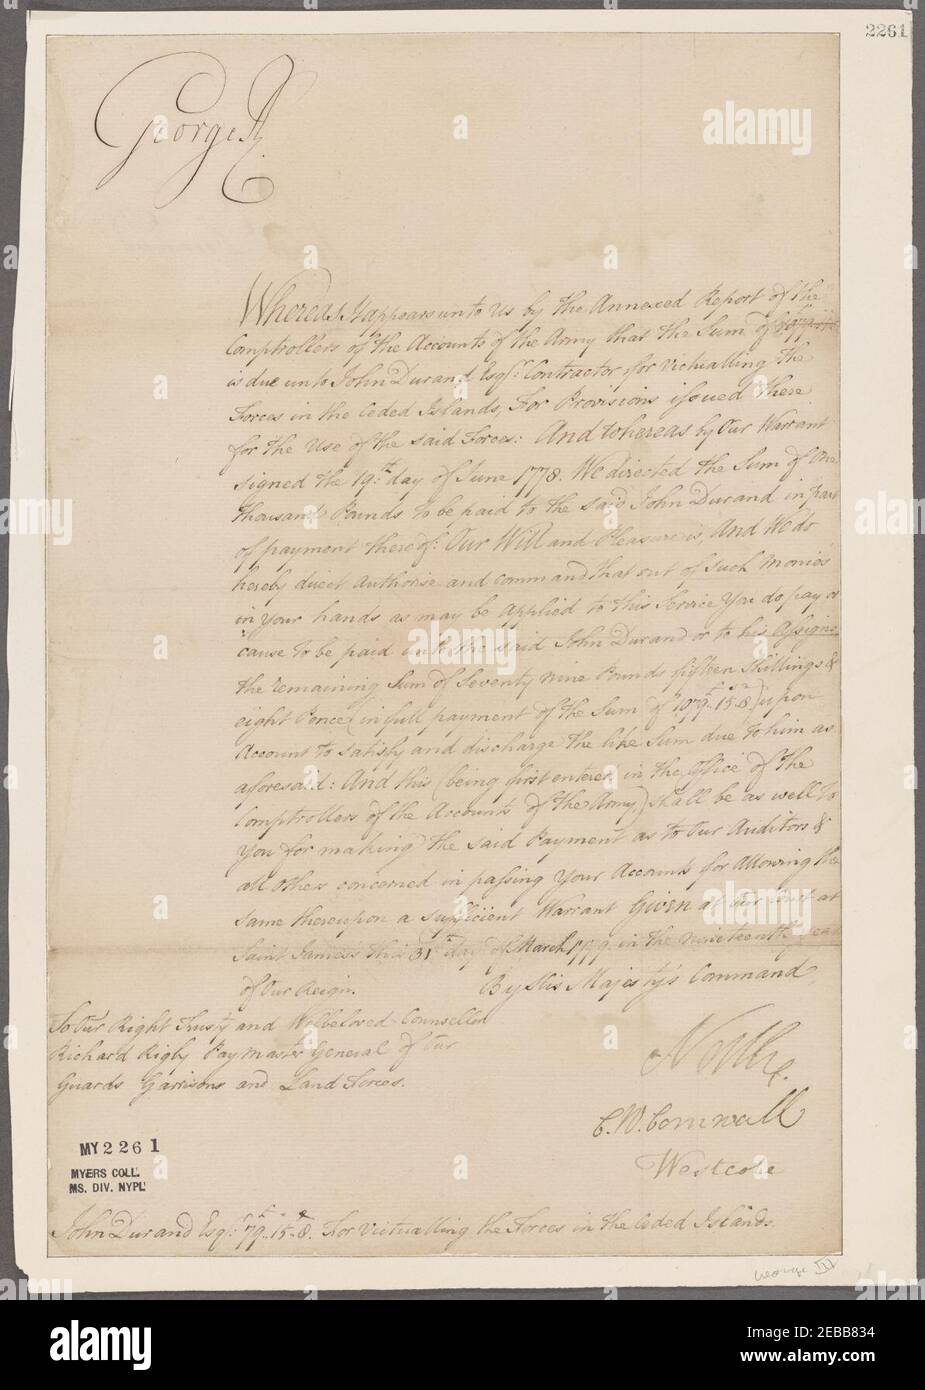 2261
George R
Whereas It appears unto Us by the Annexed Report of the
Comptrollers of the Accounts of the Army that the Sum of
is due unto John Durand Esqr. Contractor for Victualling the
Forces in the Ceded Islands, For Provisions issued there
for the Use of the said Forces: And whereas by Our Warrant
signed the 19th day of June 1778. We directed the Sum of One
thousand Pounds to be paid to the said John Durand in part
of payment thereof: Our Will and Pleasure is, And We do
hereby direct Authorise and command that out of such Monies
in your hands as may be applied to this Service You do pay or
cause to be paid unto the said John Durand or to his Assigns
the remaining Sum of Seventy nine Pounds fifteen Shillings &
eight Pence (in full payment of the Sum of 1079..15..8) upon
Account to satisfy and discharge the like Sum due to him as
aforesaid: And this (being first entered in the Office of the
Comptrollers of the Accounts of the Army,) shall be as well to
You for making the said Payment as to Our Auditors &
all others concerned in passing Your Accounts for allowing the
same thereupon a sufficient Warrant Given at Our Court at
Saint James's this 31st day of March 1779. in the nineteenth year
of Our Reign.
By His Majesty's Command,
To Our Right Trusty and Welbeloved Counsellor
Richard Rigby Paymaster General of Our
Guards Garrisons and Land Forces.
North
C. W. Cornwall
Westcote
MY2261
MYERS COLL.
MS. DIV. NYPL
John Durand Esqr. 79..15..8. For victualling the Forces in the Ceded Islands.
George III
alamy
Image ID: 2EBB834
www.alamy.com